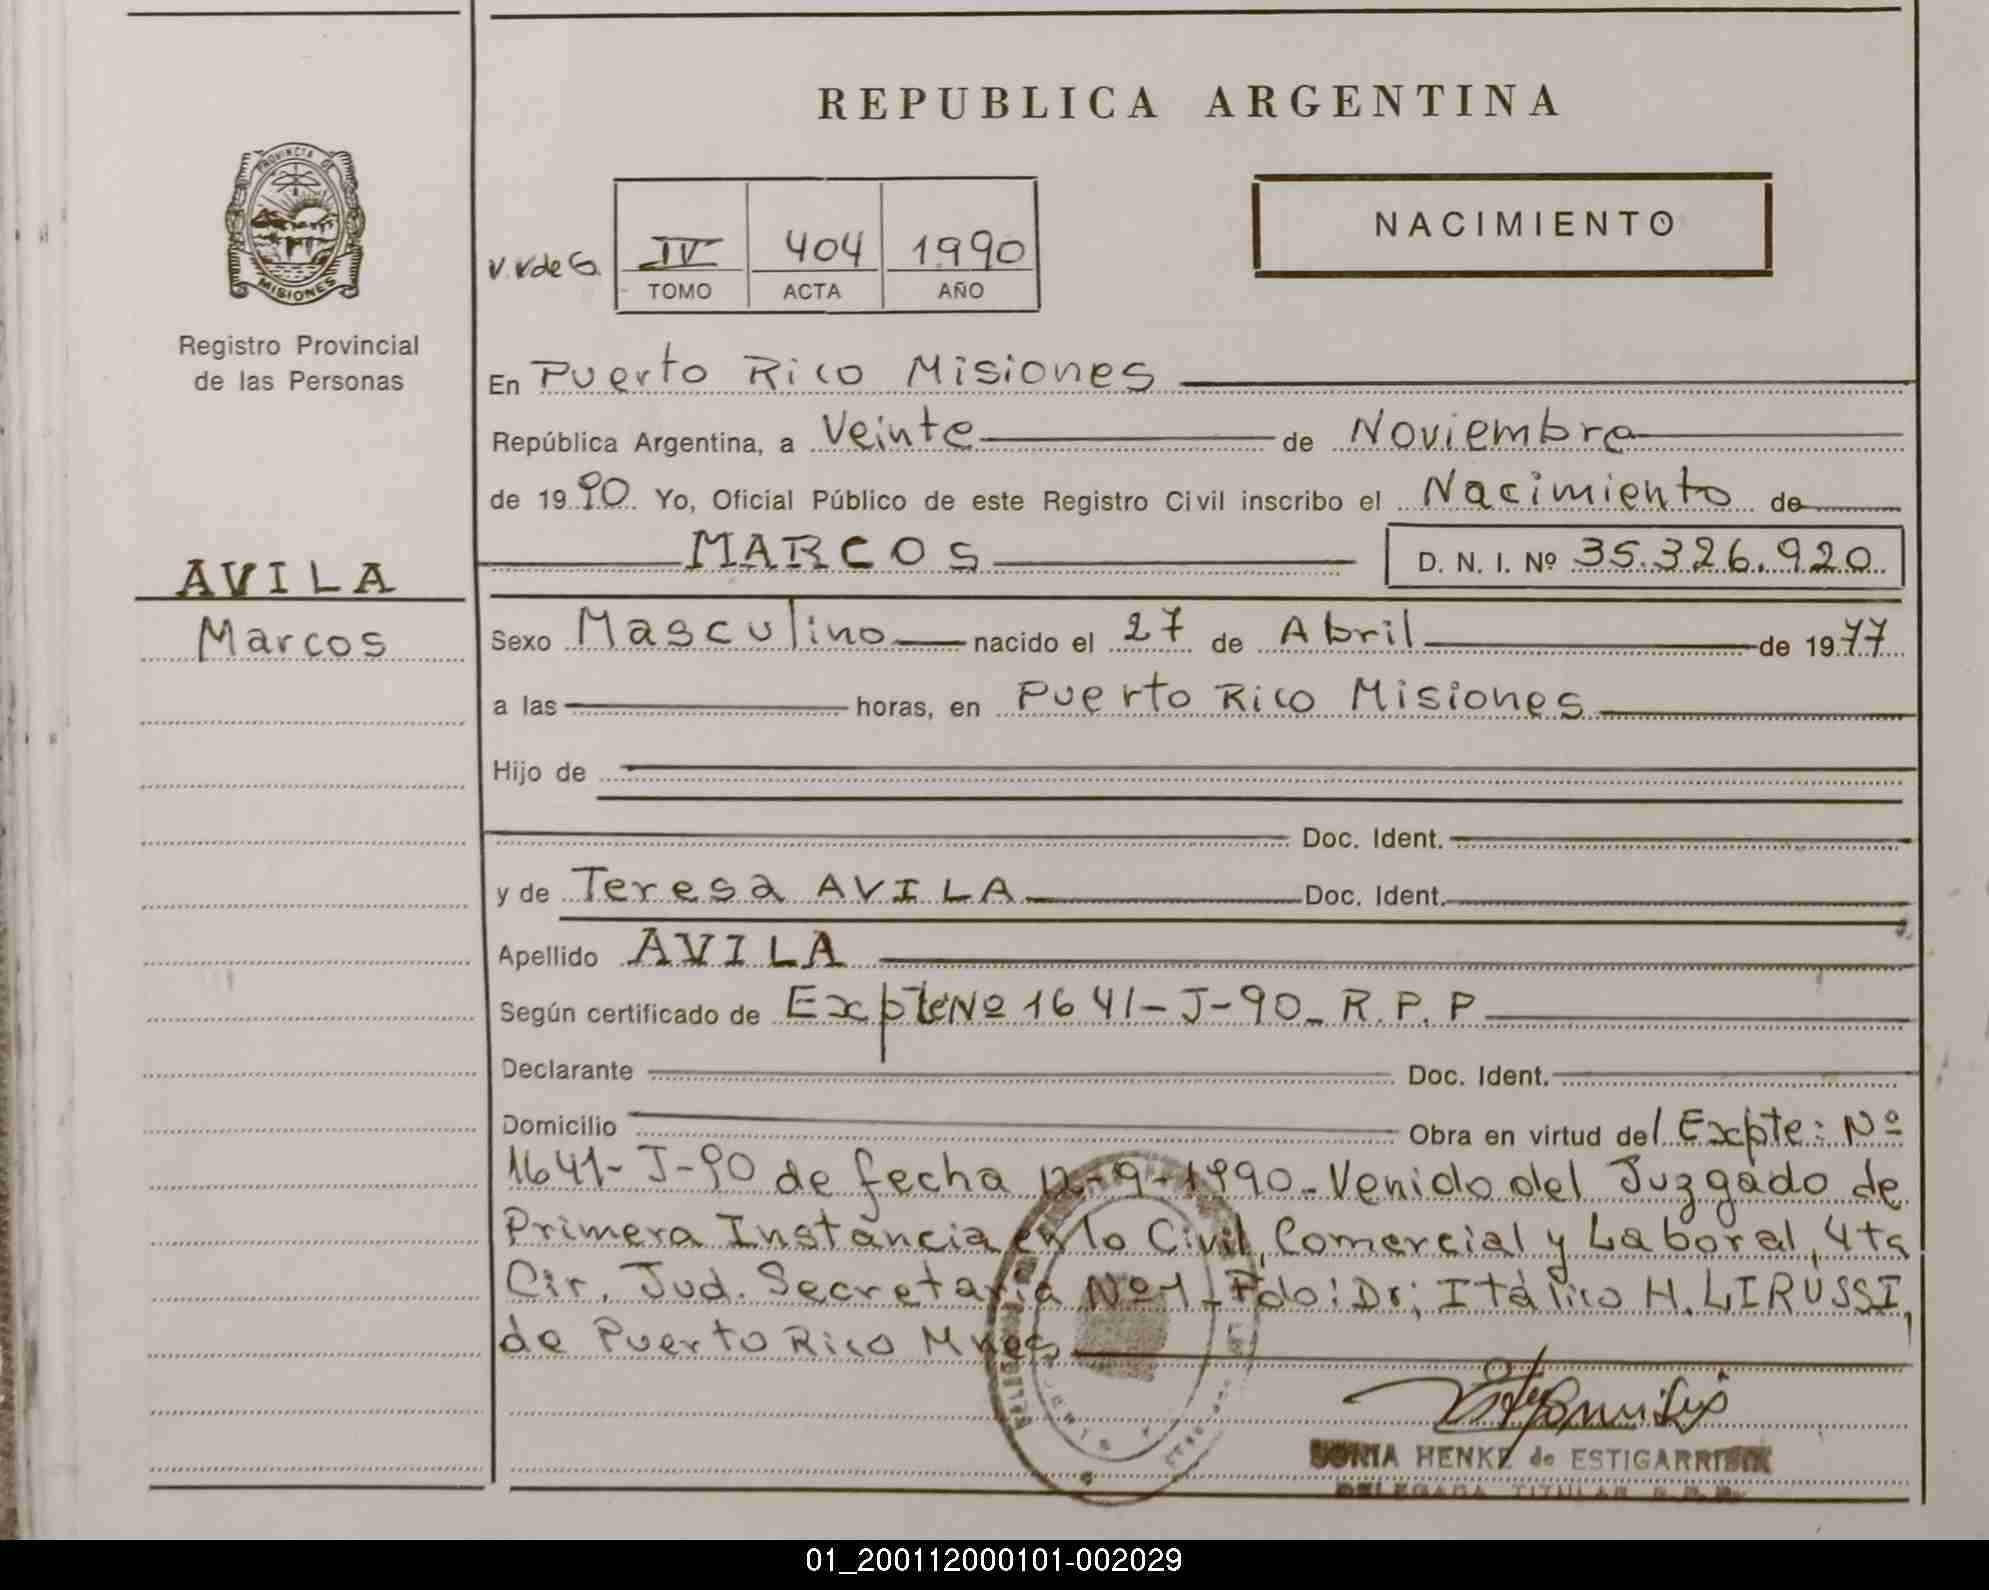 REPUBLICA ARGENTINA
PROVINCIA DE
MISIONES
Registro Provincial
de las Personas
NACIMIENTO
V.V de G. IV 404 1990
TOMO ACTA AÑO
En Puerto Rico Misiones
República Argentina, a Veinte de Noviembre
de 1990 Yo, Oficial Público de este Registro Civil inscribo el Nacimiento de
MARCOS D. N. I. Nº 35.326.920
AVILA
Marcos
Sexo Masculino nacido el 27 de Abril de 1977
a las horas, en Puerto Rico Misiones
Hijo de
Doc. Ident.
y de Teresa AVILA Doc. Ident.
Apellido AVILA
Según certificado de Expte Nº 1641-J-90_ R.P.P
Declarante Doc. Ident.
Domicilio Obra en virtud del Expte: Nº
1641-J-90 de fecha 12-9-1990. Venido del Juzgado de
Primera Instancia en lo Civil, Comercial y Laboral, 4ta
Cir. Jud. Secretaria Nº 1_ Fdo: Dr; Itálico H. LIRUSSI,
de Puerto Rico Mnes
SONIA HENKE de ESTIGARRIBIA
DELEGADA TITULAR R.P.P.
01_200112000101-002029